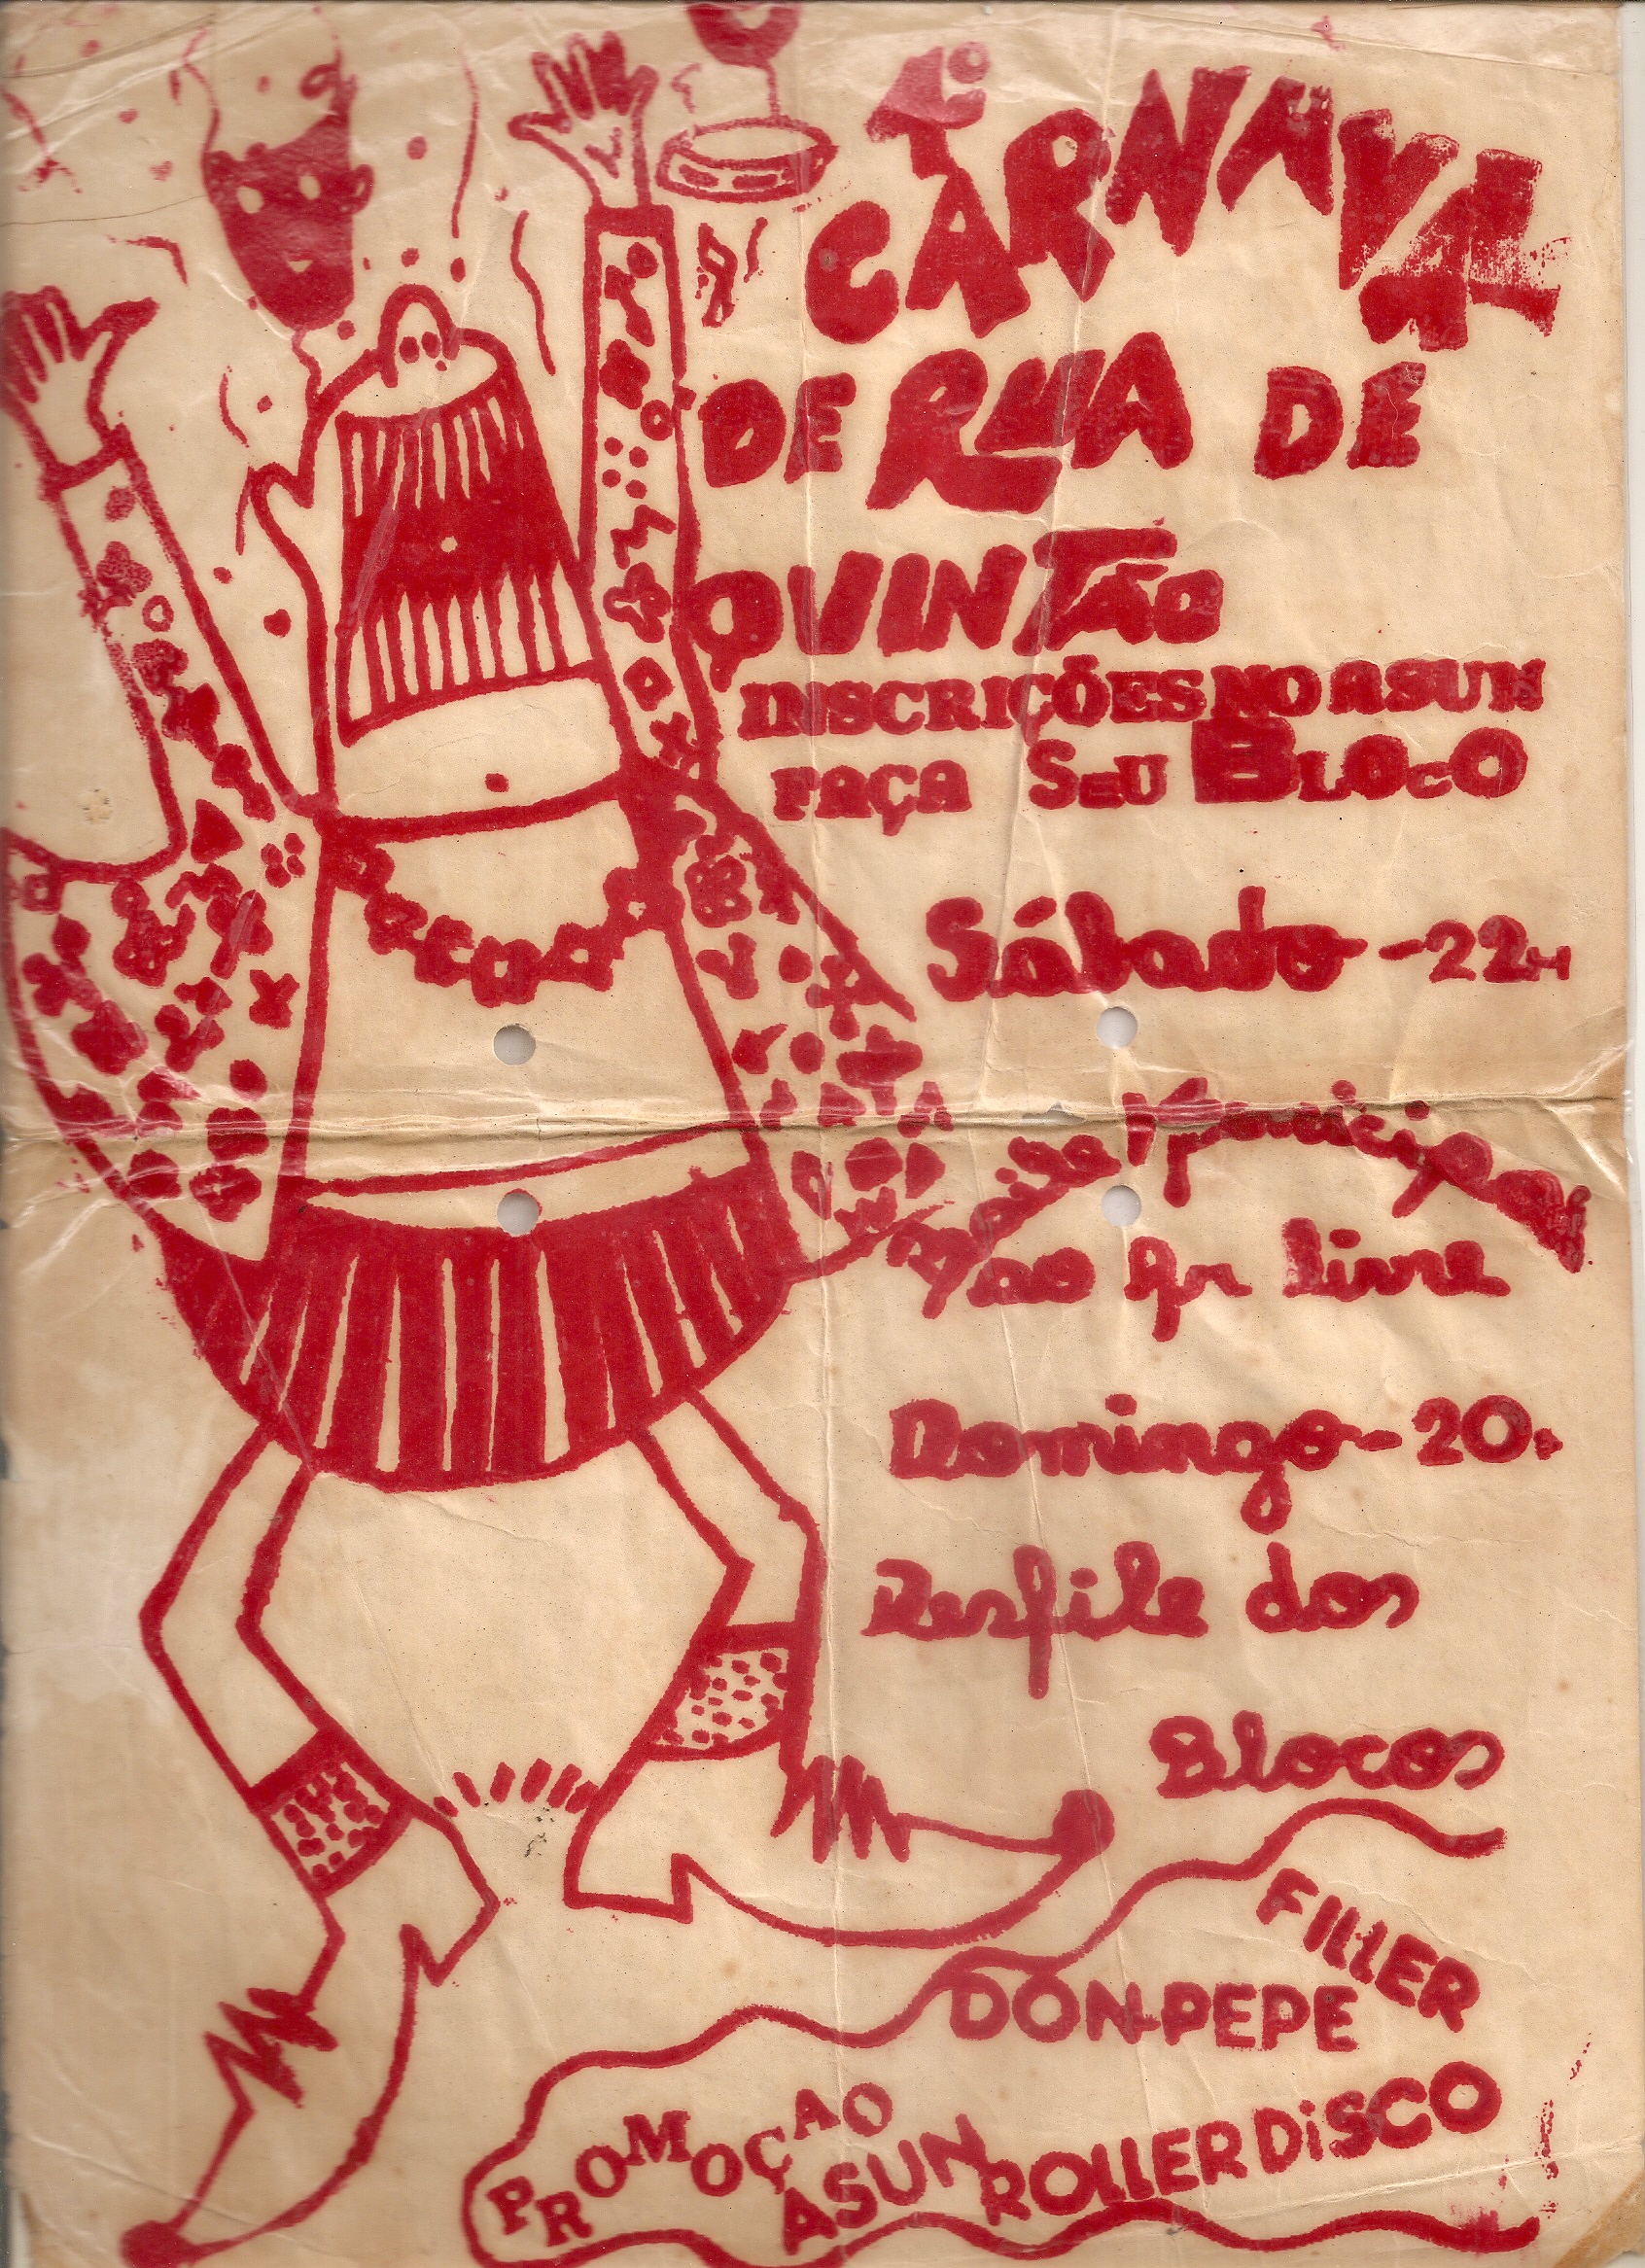 1º
CARNAVAL
DE RUA DE
QUINTÃO
INSCRIÇÕES NO ASUN
FAÇA SEU BLOCO
Sábado - 22H
Baile Municipal
Ao Ar livre
Domingo - 20h
Desfile dos
Blocos
FILLER
DON-PEPE
PROMOÇAO
ASUN ROLLER DISCO